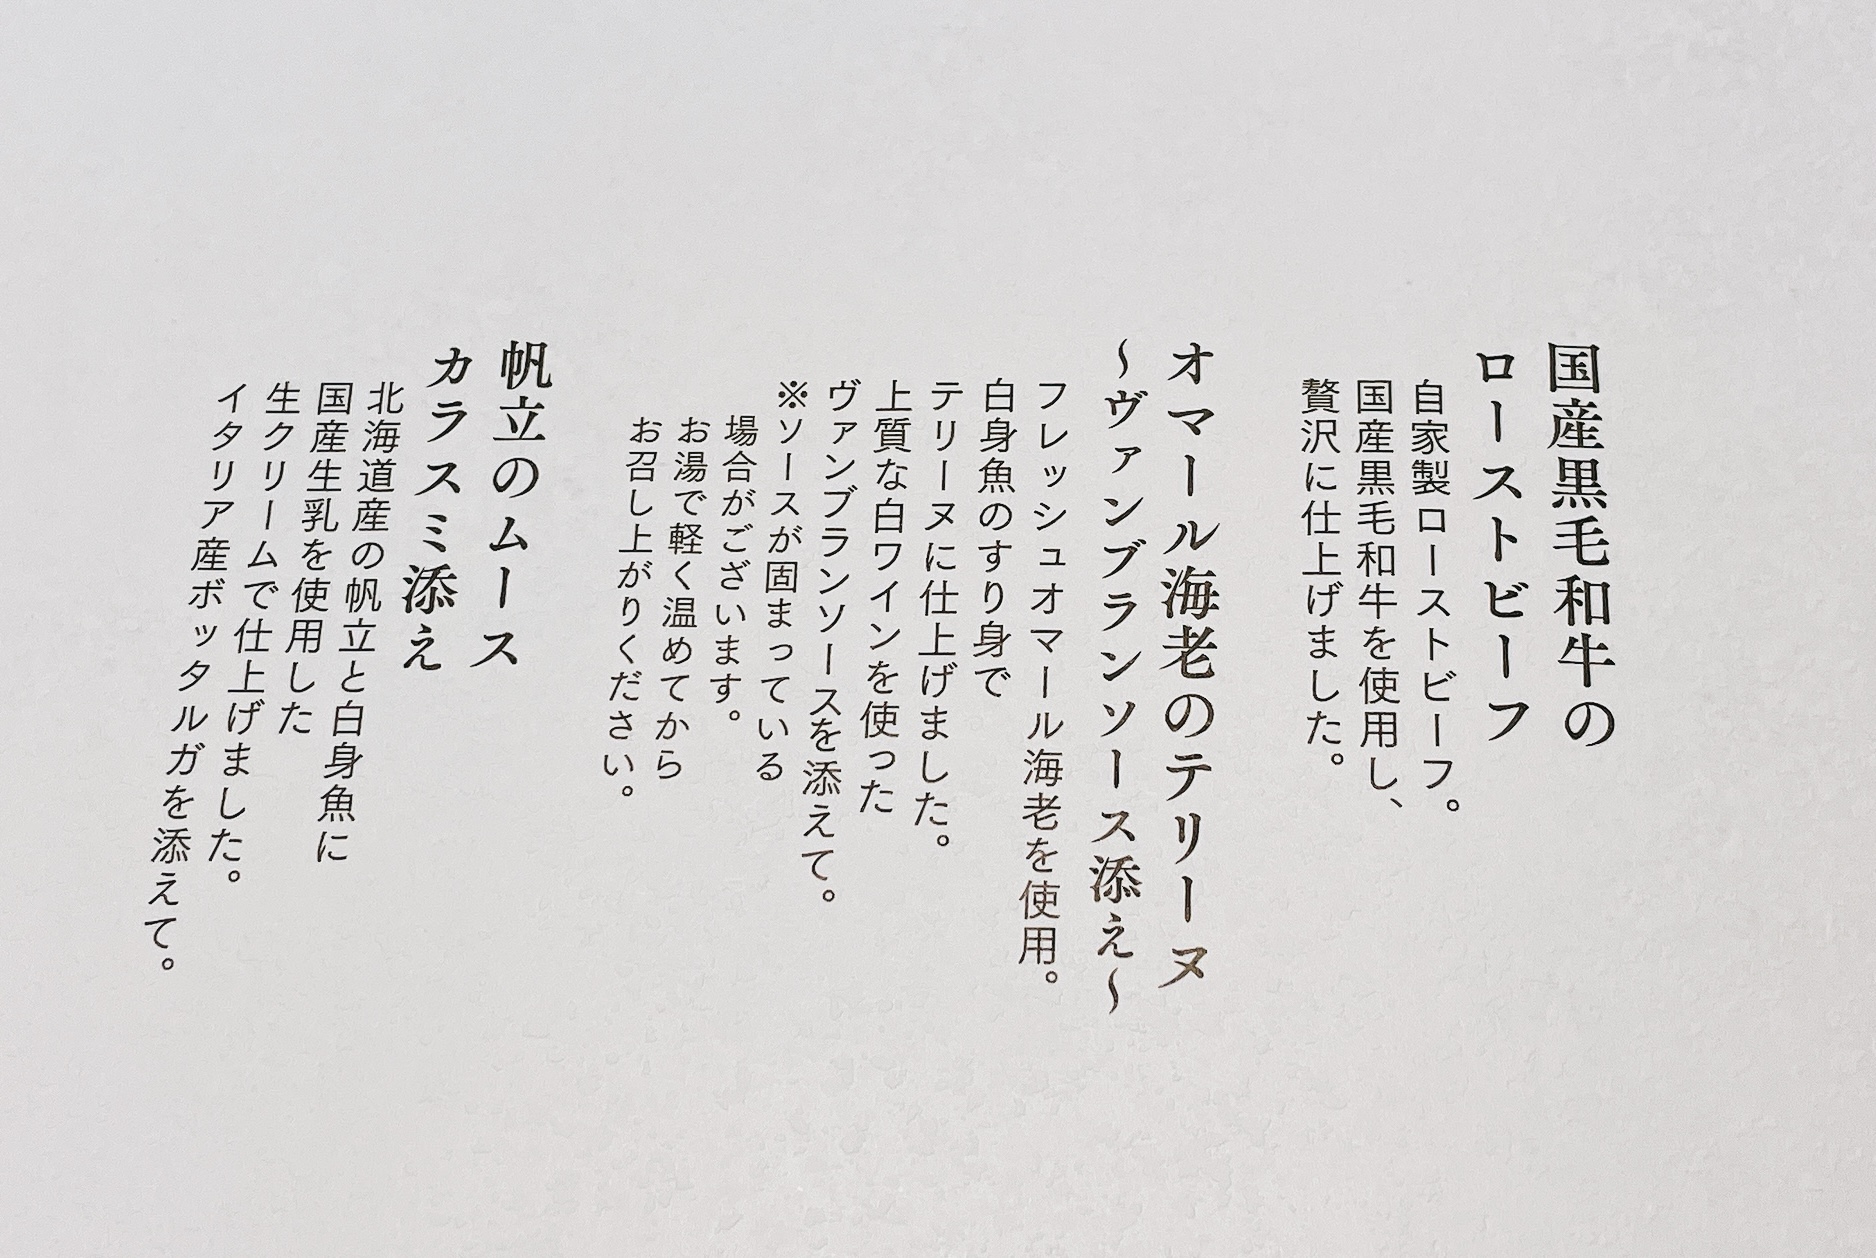 国産黒毛和牛の
ローストビーフ
自家製ローストビーフ。
国産黒毛和牛を使用し、
贅沢に仕上げました。
オマール海老のテリーヌ
〜ヴァンブランソース添え〜
フレッシュオマール海老を使用。
白身魚のすり身で
テリーヌに仕上げました。
上質な白ワインを使った
ヴァンブランソースを添えて。
※ソースが固まっている
場合がございます。
お湯で軽く温めてから
お召し上がりください。
帆立のムース
カラスミ添え
北海道産の帆立と白身魚に
国産生乳を使用した
生クリームで仕上げました。
イタリア産ボッタルガを添えて。